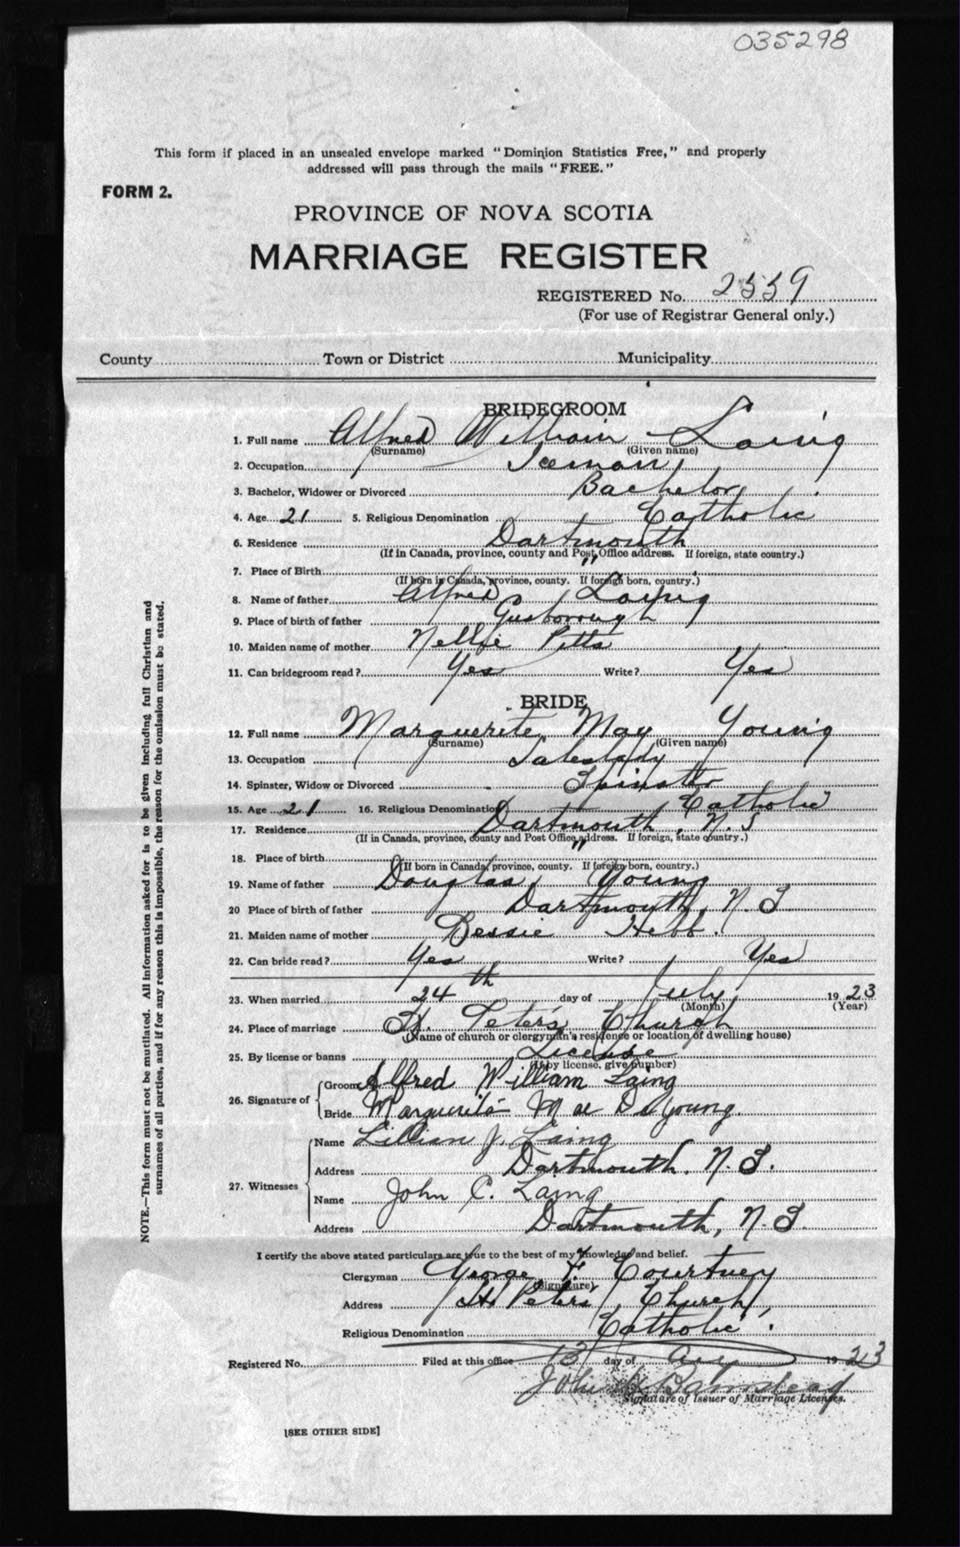 035298
This form if placed in an unsealed envelope marked "Dominion Statistics Free," and properly
addressed will pass through the mails "FREE."
FORM 2.
PROVINCE OF NOVA SCOTIA
MARRIAGE REGISTER
REGISTERED No. 2559
(For use of Registrar General only.)
County Town or District Municipality
BRIDEGROOM
1. Full name Alfred William Laing
(Surname) (Given name)
2. Occupation Iceman
3. Bachelor, Widower or Divorced Bachelor
4. Age 21 5. Religious Denomination Catholic
6. Residence Dartmouth
(If in Canada, province, county and Post Office address. If foreign, state country.)
7. Place of Birth "
(If born in Canada, province, county. If foreign born, country.)
8. Name of father Alfred Laing
9. Place of birth of father Gusborough
10. Maiden name of mother Nellie Pitts
11. Can bridegroom read? Yes Write? Yes
BRIDE
12. Full name Marguerite May Young
(Surname) (Given name)
13. Occupation Saleslady
14. Spinster, Widow or Divorced Spinster
15. Age 21 16. Religious Denomination Catholic
17. Residence Dartmouth, N.S
(If in Canada, province, county and Post Office address. If foreign, state country.)
18. Place of birth "
(If born in Canada, province, county. If foreign born, country.)
19. Name of father Douglas Young
20 Place of birth of father Dartmouth, N S
21. Maiden name of mother Bessie Hebb.
22. Can bride read? Yes Write? Yes
23. When married 24th day of July 1923
(Month) (Year)
24. Place of marriage St. Peter's Church
(Name of church or clergyman's residence or location of dwelling house)
25. By license or banns License
(If by license, give number)
26. Signature of Groom Alfred William Laing
Bride Marguerite Mae DeYoung
27. Witnesses
Name Lillian J. Laing
Address Dartmouth. N.S.
Name John C. Laing
Address Dartmouth, N.S.
I certify the above stated particulars are true to the best of my knowledge and belief.
Clergyman George F. Courtney
(Signature)
Address St Peter's Church,
Religious Denomination Catholic.
Registered No. Filed at this office 13 day of Aug 1923
John Barnstead
Signature of Issuer of Marriage Licenses.
[SEE OTHER SIDE]
NOTE.—This form must not be mutilated. All information asked for is to be given including full Christian and
surnames of all parties, and if for any reason this is impossible, the reason for the omission must be stated.